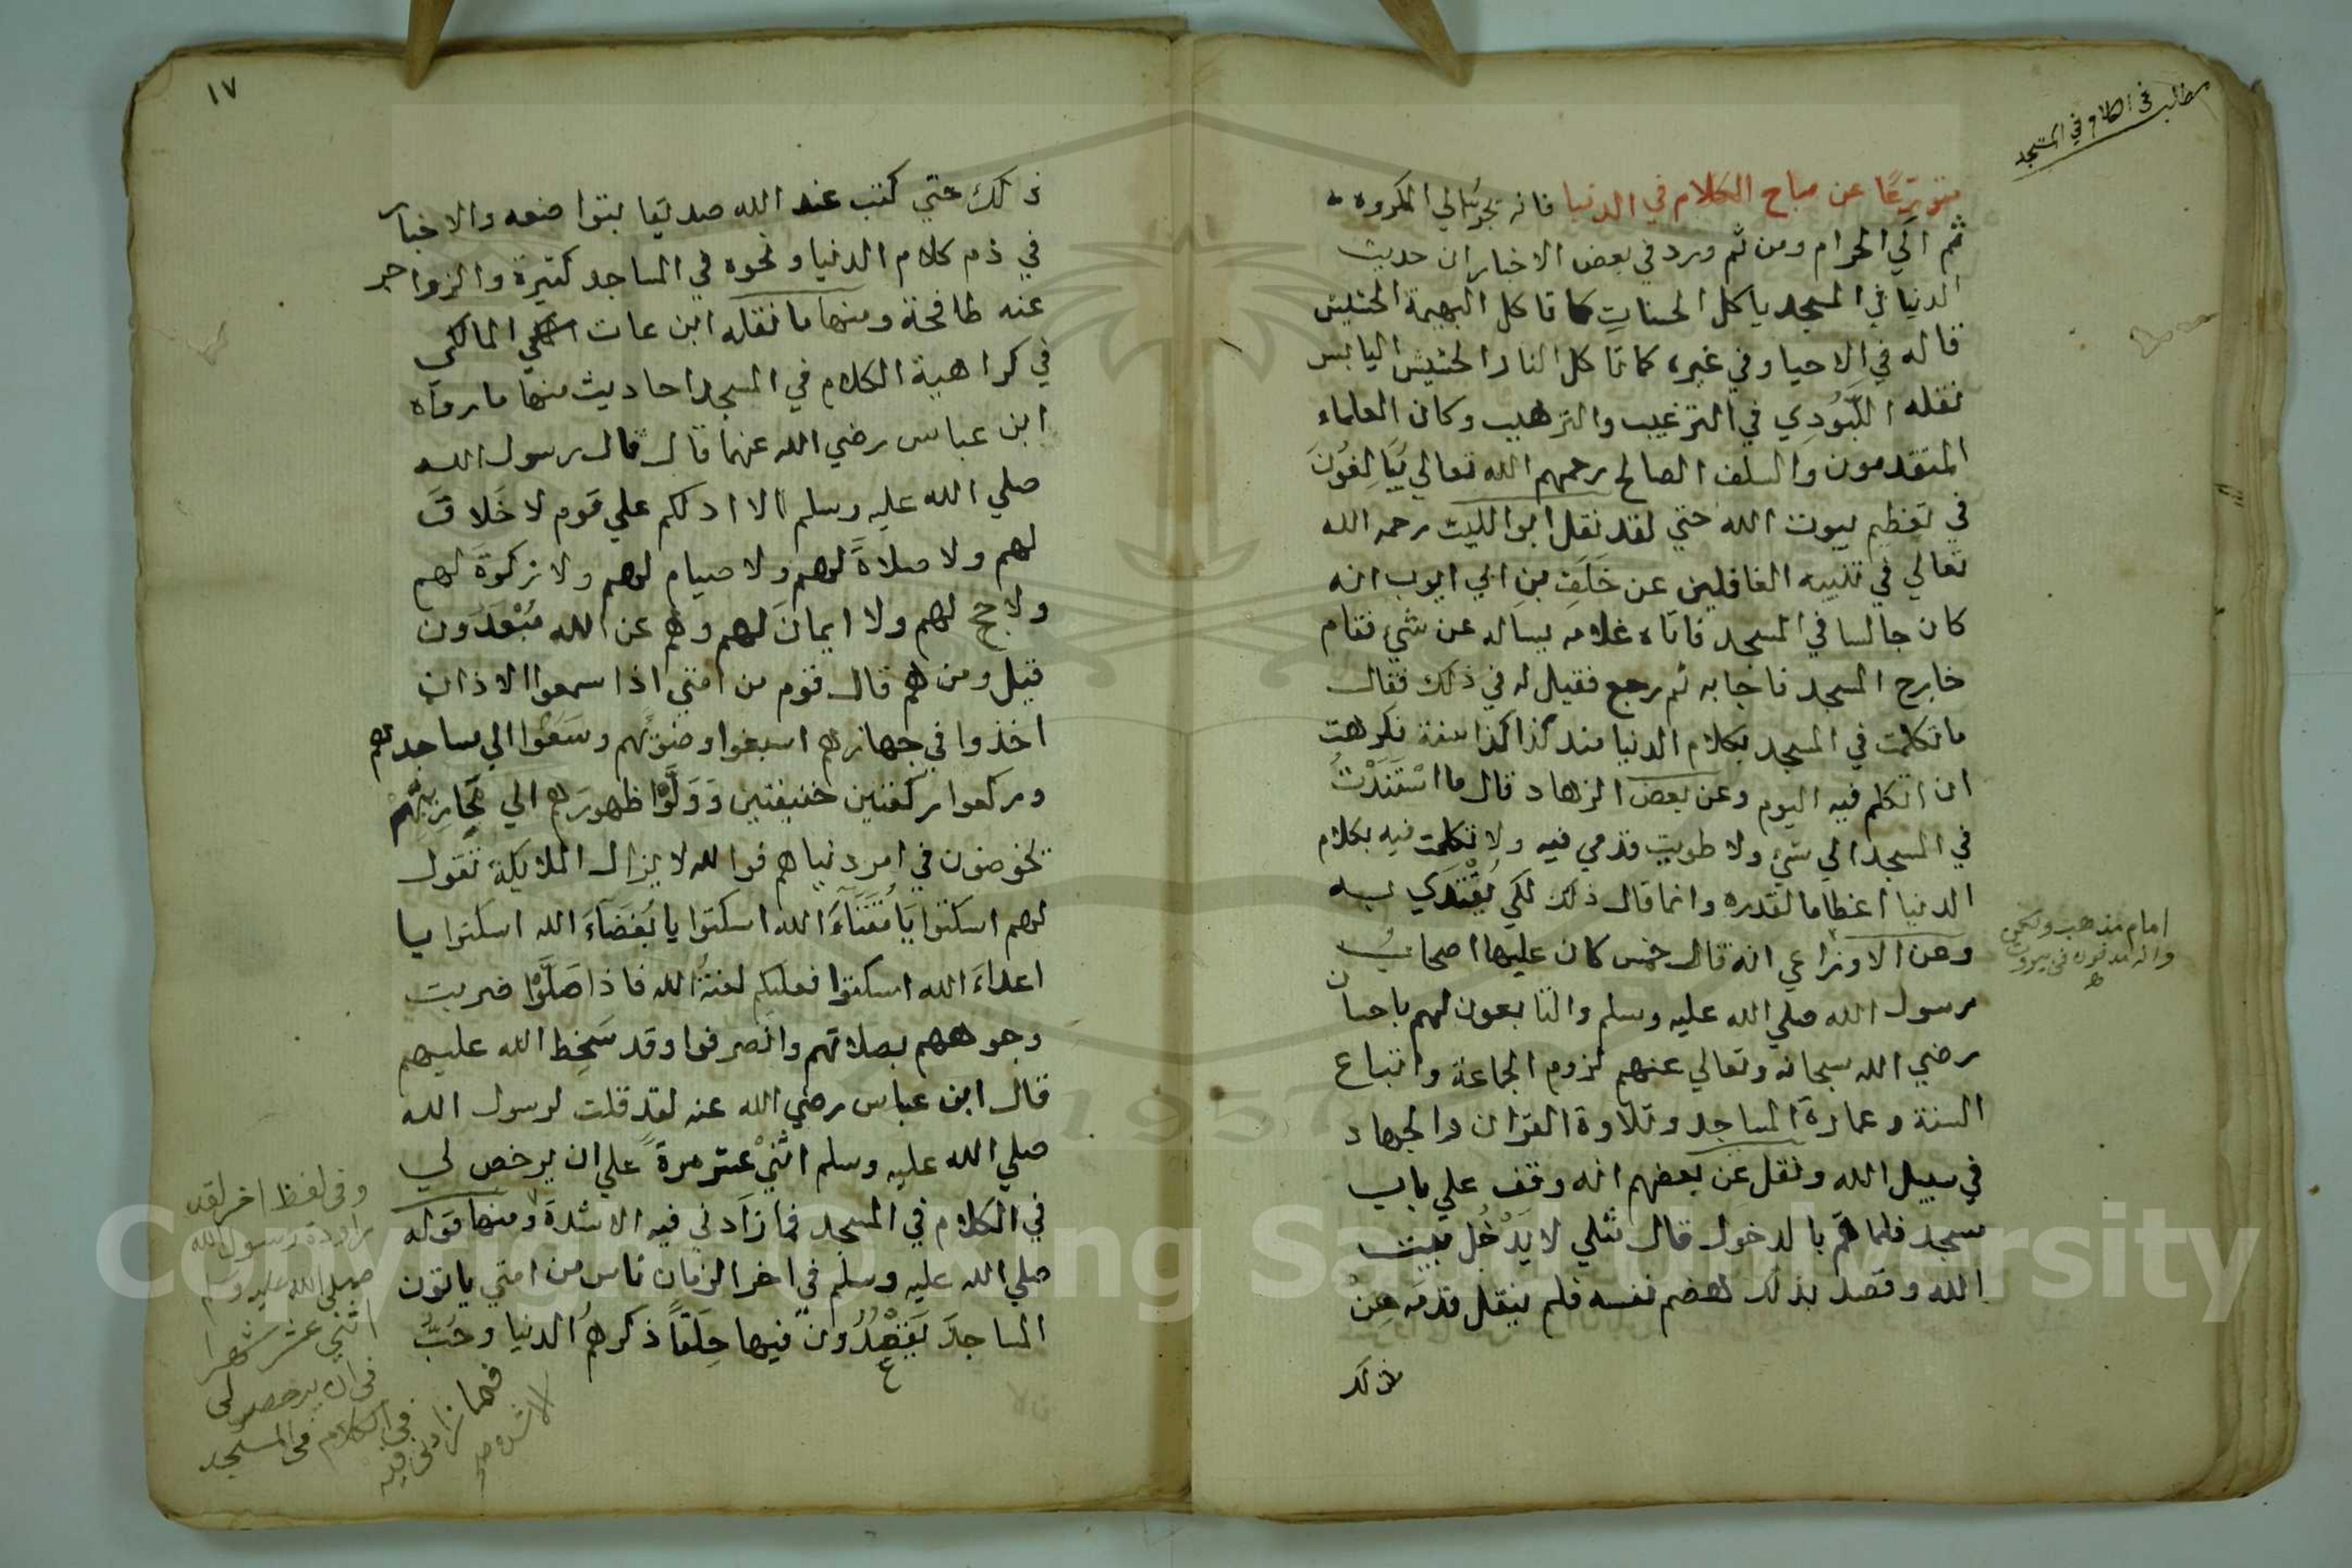 مطلب في الكلام في المسجد
متورعًا عن مباح الكلام في الدنيا فانه يجر الي المكروه
ثم الي الحرام ومن ثم ورد في بعض الاخبار ان حديث
الدنيا في المسجد ياكل الحسنات كما تاكل البهيمة الحشيش
قاله في الاحيا وفي غيره كما تاكل النار الحشيش اليابس
نقله اللبودي في الترغيب والترهيب وكان العلماء
المتقدمون والسلف الصالح رحمهم الله تعالي يبالغون
في تعظيم بيوت الله حتي لقد نقل ابو الليث رحمه الله
تعالي في تنبيه الغافلين عن خلف بن ابي ايوب انه
كان جالسا في المسجد فاتاه غلامه يساله عن شيء فقام
خارج المسجد فاجابه ثم رجع فقيل له في ذلك فقال
ما تكلمت في المسجد بكلام الدنيا منذ كذا كذا سنة فكرهت
ان اتكلم فيه اليوم وعن بعض الزهاد قال ما استندت
في المسجد الي شيء ولا طويت قدمي فيه ولا تكلمت فيه بكلام
الدنيا اعظاما لقدره وانما قال ذلك لكي يقتدي به
وعن الاوزاعي انه قال خمس كان عليها اصحاب
رسول الله صلي الله عليه وسلم والتابعون لهم باحسان
رضي الله سبحانه وتعالي عنهم لزوم الجماعة واتباع
السنة وعمارة المساجد وتلاوة القران والجهاد
في سبيل الله ونقل عن بعضهم انه وقف علي باب
مسجد فلما هم بالدخول قال مثلي لا يدخل بيت
الله وقصد بذلك هضم نفسه فلم ينقل قدمه عن
ذلك
امام مذهب
وانه مدفون في بيروت
١٧
ذلك حتي كتب عند الله صديقا بتواضعه والاخبار
في ذم كلام الدنيا ونحوه في المساجد كثيرة والزواجر
عنه طافحة ومنها ما نقله ابن عات المالكي
في كراهية الكلام في المسجد احاديث منها ما رواه
ابن عباس رضي الله عنهما قال قال رسول الله
صلي الله عليه وسلم الا ادلكم علي قوم لا خلاق
لهم ولا صلاة لهم ولا صيام لهم ولا زكوة لهم
ولا حج لهم ولا ايمان لهم وهم عن الله مبعدون
قيل ومن هم قال قوم من امتي اذا سمعوا الاذان
اخذوا في جهازهم اسبغوا وضوئهم وسعوا الي مساجدهم
وركعوا ركعتين خفيفتين وولوا ظهورهم الي محاريبهم
يخوضون في امر دنياهم فوالله لا يزال الملايكة تقول
لهم اسكتوا يا مقتاء الله اسكتوا يا بغضاء الله اسكتوا يا
اعداء الله اسكتوا فعليكم لعنة الله فاذا صلوا ضربت
وجوههم بصلاتهم وانصرفوا وقد سخط الله عليهم
قال ابن عباس رضي الله عنه لقد قلت لرسول الله
صلي الله عليه وسلم اثني عشر مرة علي ان يرخص لي
في الكلام في المسجد فما زادني فيه الا شدة ومنها قوله
صلي الله عليه وسلم في اخر الزمان ناس من امتي ياتون
المساجد يقعدون فيها حلقا ذكرهم الدنيا وحب
وفي لفظ اخر لقد
راودت رسول الله
صلى الله عليه وسلم
اثني عشر شهرا
في ان يرخص لي
في الكلام في المسجد
فما زادني فيه
الا شدة
Copyright © King Saud University
1957